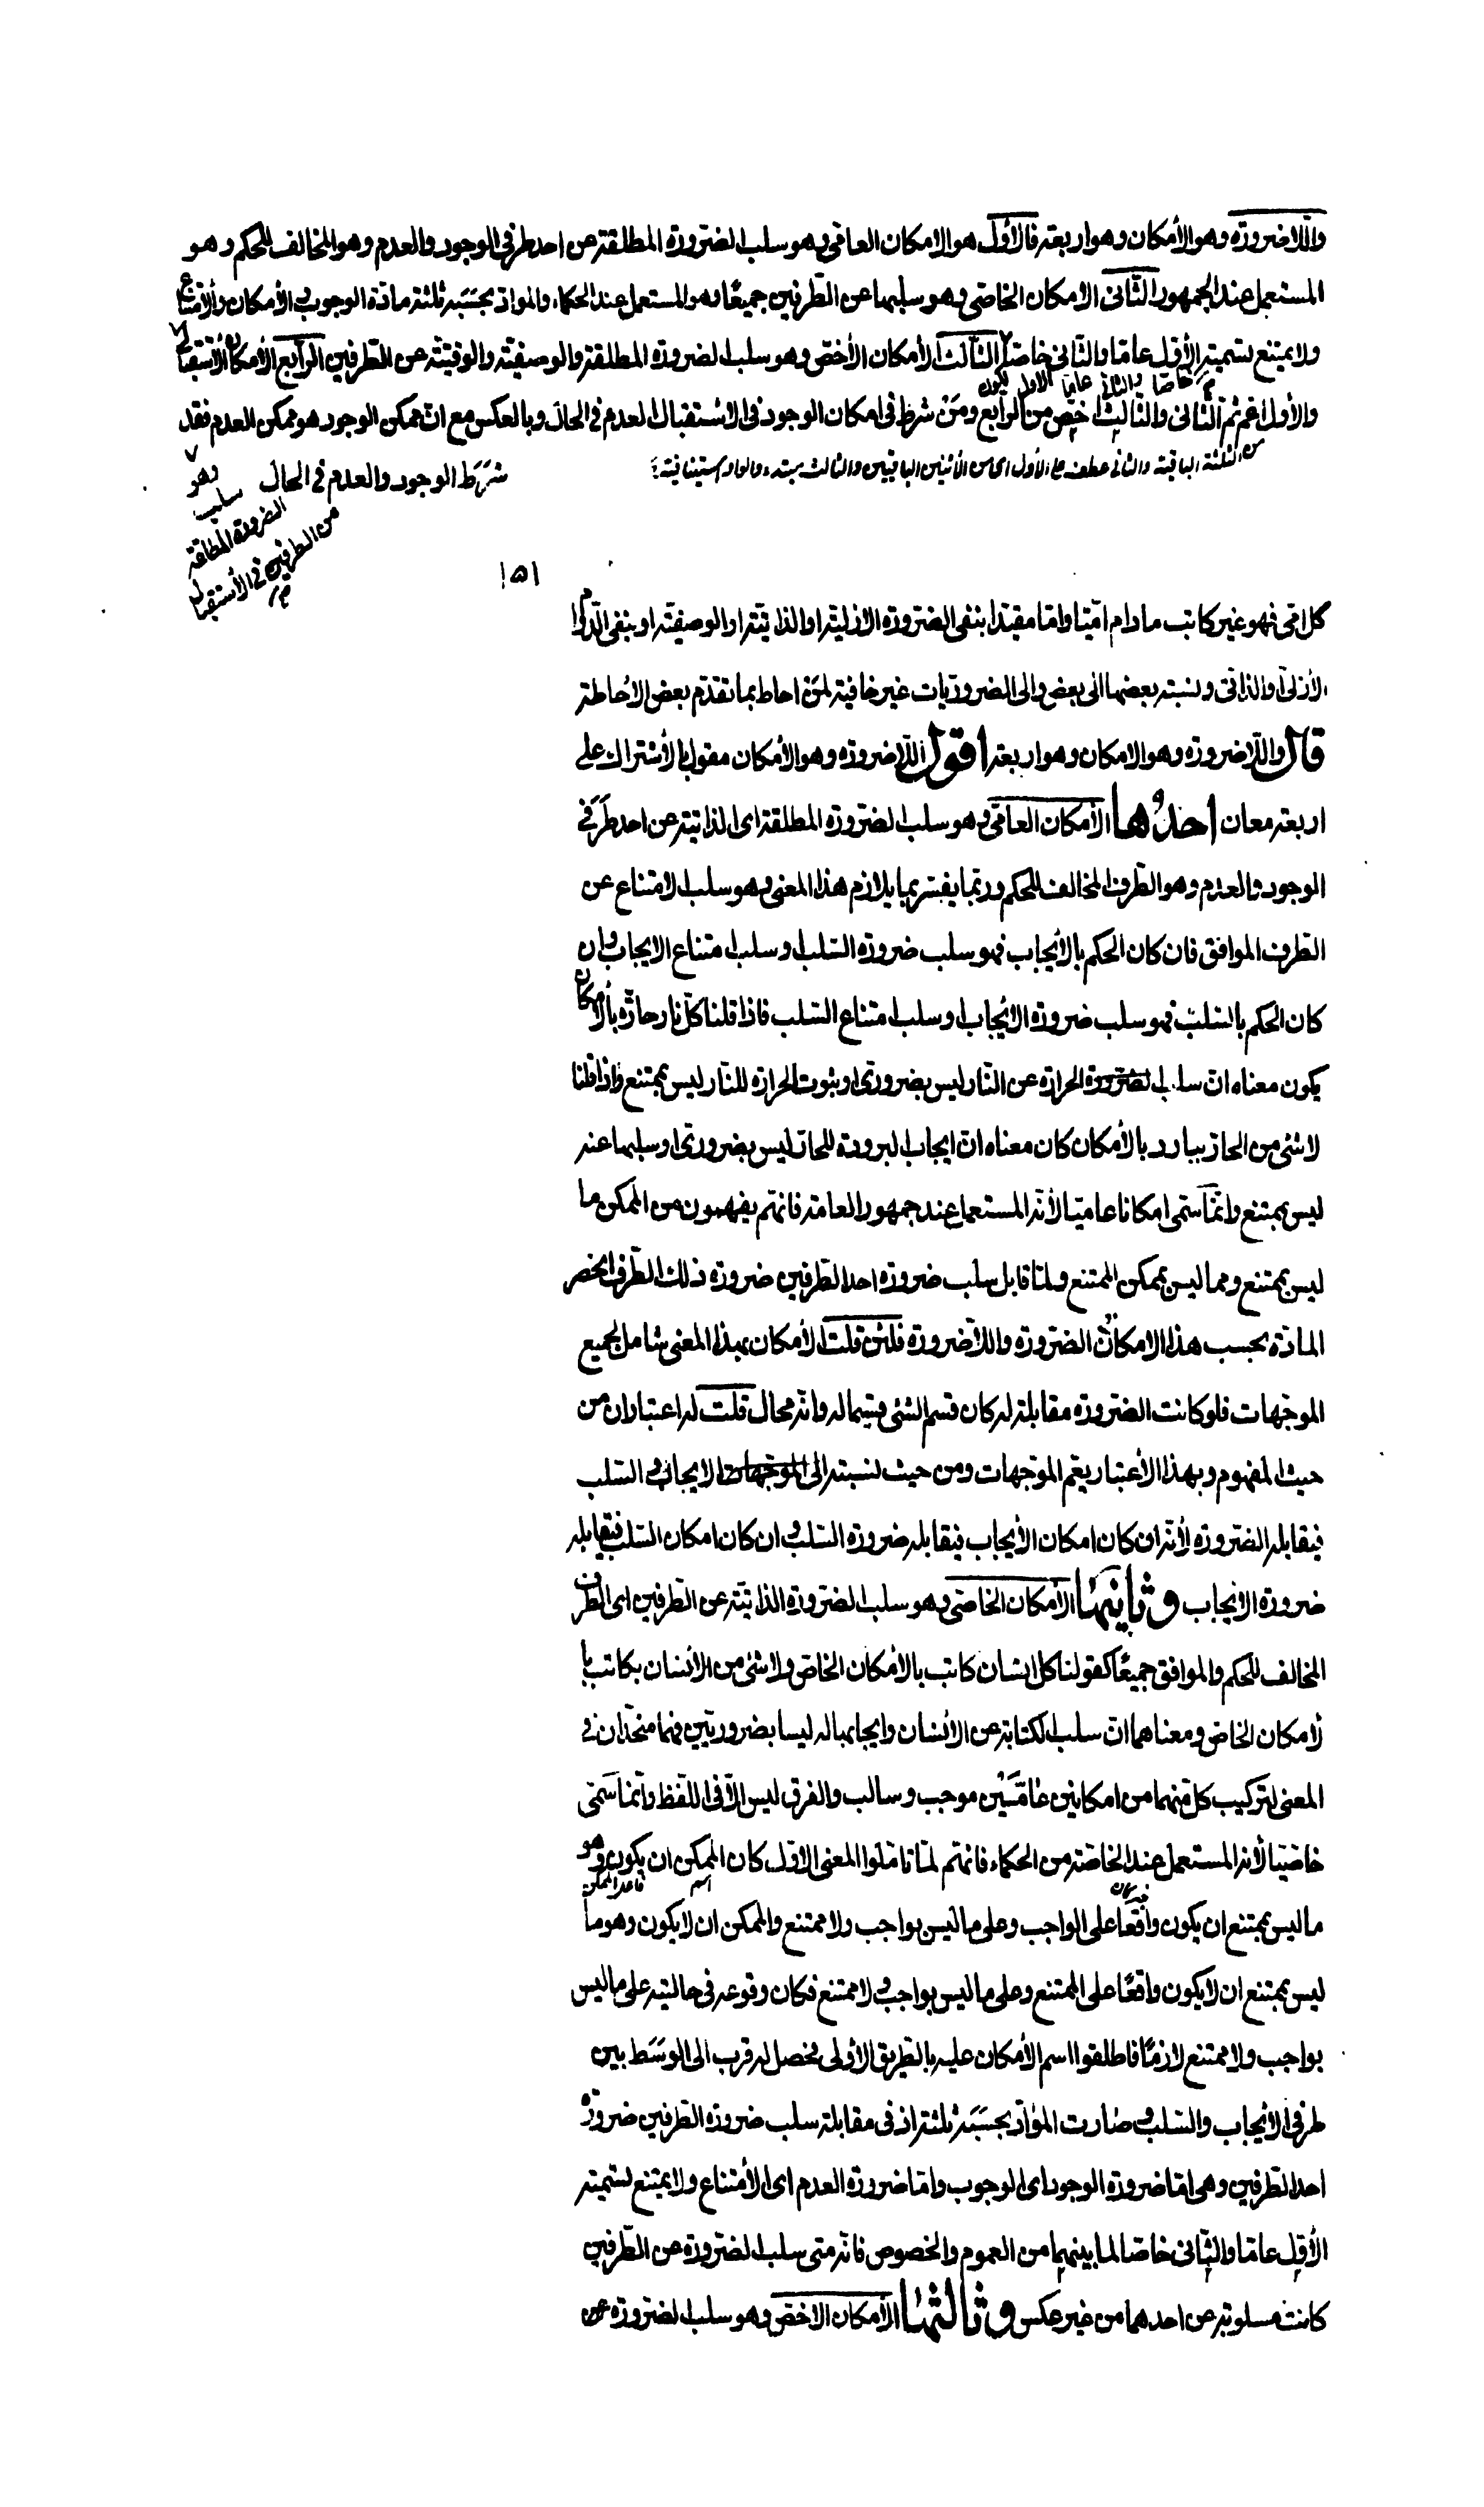 واللاضرورة وهو الأمكان وهو اربعة فالأول هو الامكان العامي وهو سلب الضرورة المطلقة عن احد طرفي الوجود والعدم وهو المخالف للحكم وهو
المستعمل عند الجمهور الثاني الامكان الخاصي وهو سلبهما عن الطرفين جميعًا وهو المستعمل عند الحكماء والمواد بحسَبَه ثلثة مادة الوجوب والأمكان والأمتناع
ولا يمتنع تسمية الأول عامّا والثاني خاصّا الثالث الأمكان الأخصّ وهو سلب الضرورة المطلقة والوصفية والوقتية عن الطرفين الرابع الأمكان الأستقبالي
خاصّا والثاني عامّا الاول ليكون
والأول اعم ثم الثاني والثالث اخصّ من الرابع ومَنْ شرط في امكان الوجود في الاستقبال العدم في الحال وبالعكس مع انّ ممكن الوجود هو ممكن العدم فقد
من الثلثة الباقية والثاني عطف على الأول اي من الأثنين الباقيين والثالث مبتدء والواو استينافية
شَرَط الوجود والعدم في الحال
وهو
سلب
الضرورة المطلقة
من الطرفين في الأستقبال
١٥١
كل امّي فهو غير كاتب مادام امّيّا وامّا مقيّدا بنفي الضرورة الازلية او الذاتية او الوصفية او بنفي الدّوام
الأزلي او الذاتي ونسبة بعضها الى بعض والى الضروريات غير خافية لمَن احاط بما تقدّم بعض الاحاطة
قال واللاضرورة وهو الامكان وهو اربعة اقول اللاضرورة وهو الأمكان مقول بالأشتراك على
اربعة معان احدُها الأمكان العامي وهو سلب الضرورة المطلقة اى الذاتية عن احد طرَفي
الوجود والعدم وهو الطرف المخالف للحكم وربّما يفسّر بما يلازم هذا المعنى وهو سلب الامتناع عن
الطرف الموافق فان كان الحكم بالأيجاب فهو سلب ضرورة السّلب او سلب امتناع الايجاب وان
كان الحكم بالسّلب فهو سلب ضرورة الايجاب او سلب امتناع السّلب فاذا قلنا كلّ نار حارّة بالأمكان
يكون معناه انّ سلب الحرارة عن النّار ليس بضروري او ثبوت الحرارة للنّار ليس بممتنع واذا قلنا
لا شئ من الحار ببارد بالأمكان كان معناه انّ ايجاب البرودة للحار ليس بضروري او سلبهما عنه
ليس بممتنع وانّما سمّي امكانا عاميّا لأنّه المستعمل عند جمهور العامة فانهم يفهمون من الممكن ما
ليس بممتنع ومما ليس بممكن الممتنع ولمّا قابل سلب ضرورة احد الطرفين ضرورة ذلك الطرف انحصر
المادّة بحسب هذا الامكان في الضرورة واللاضرورة فلئن قلت الأمكان بهذا المعنى شامل لجميع
الموجّهات فلو كانت الضرورة مقابلة له كان قسم الشئ قسيما له وانّه محال قلت له اعتباران من
حيث المفهوم وبهذا الأعتبار يعمّ الموجّهات ومن حيث نسبته الى الايجاب والسّلب
فيقابله الضرورة لأنّه ان كان امكان الأيجاب فيقابله ضرورة السّلب وان كان امكان السّلب فيقابله
ضرورة الأيجاب وثانيهَا الأمكان الخاصي وهو سلب الضرورة الذاتية عن الطرفين اى الطرف
المخالف للحكم والموافق جميعًا كقولنا كل انسان كاتب بالأمكان الخاص ولا شئ من الأنسان بكاتب با
لأمكان الخاص ومعناهما انّ سلب الكتابة عن الأنسان وايجابها له ليسا بضروريّين فهما متّحدان في
المعنى لتركيب كلّ منهما من امكانين عامَّيْن موجب وسالب والفرق ليس الّا في اللفظ وانّما سَمّى
خاصّيّا لأنه المستعمل عند الخاصّة من الحكماء فانهم لمّا تأمّلوا المعنى الاوّل كان الممكن ان يكون وهو
ما ليس بممتنع ان يكون واقعًا على الواجب وعلى ما ليس بواجب ولا ممتنع والممكن ان لا يكون وهو ما
ليس بممتنع ان لا يكون واقعًا على الممتنع وعلى ما ليس بواجب ولا ممتنع فكان وقوعه في حالتيه على ما ليس
بواجب ولا ممتنع لازمًا فاطلقوا اسم الأمكان عليه بالطريق الأولى فحصل له قرب الى الوسَط بين
طرفي الأيجاب والسّلب وصارت الموادّ بحسَبَه ثلثة اذ في مقابلة سلب ضرورة الطرفين ضرورة
احد الطرفين وهي امّا ضرورة الوجود اى الوجوب وامّا ضرورة العدم اى الأمتناع ولا يمتنع تسمية
الأول عامّا والثاني خاصّا لما بينهما من العموم والخصوص فانّه متى سلب الضرورة عن الطرفين
كانت مسلوبة عن احدهما من غير عكس وثالثهَا الأمكان الاخصّ وهو سلب الضرورة عن